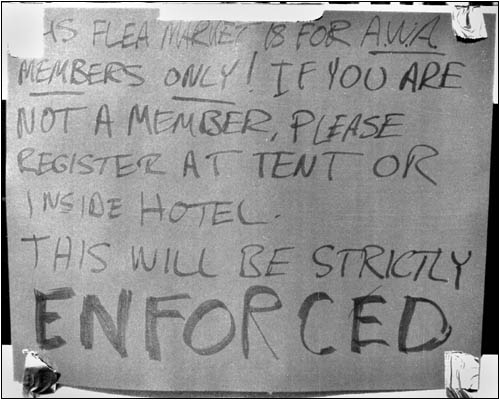 IS FLEA MARKET IS FOR A.W.A.
MEMBERS ONLY! IF YOU ARE
NOT A MEMBER, PLEASE
REGISTER AT TENT OR
INSIDE HOTEL.
THIS WILL BE STRICTLY
ENFORCED